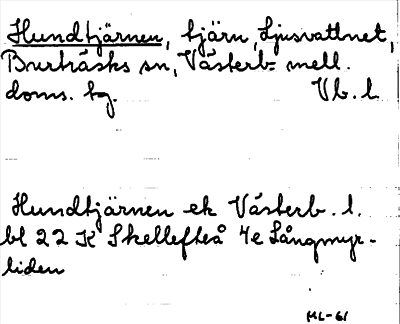 Hundtjärnen, tjärn, Ljusvattnet,
Burträsks sn, Västerb. mell.
doms. hg. Vb. l
Hundtjärnen ek Västerb. l.
bl 22 K Skellefteå 4e Långmyr-
liden
ML-61